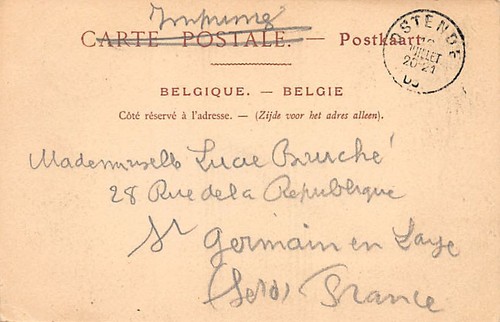 Imprimé
CARTE POSTALE. — Postkaart
OSTENDE
JUILLET
20-21
BELGIQUE. — BELGIE
Côté réservé à l'adresse. — (Zijde voor het adres alleen).
Mademoiselle Lucie
28 Rue de la Republique
St Germain en Laye
France